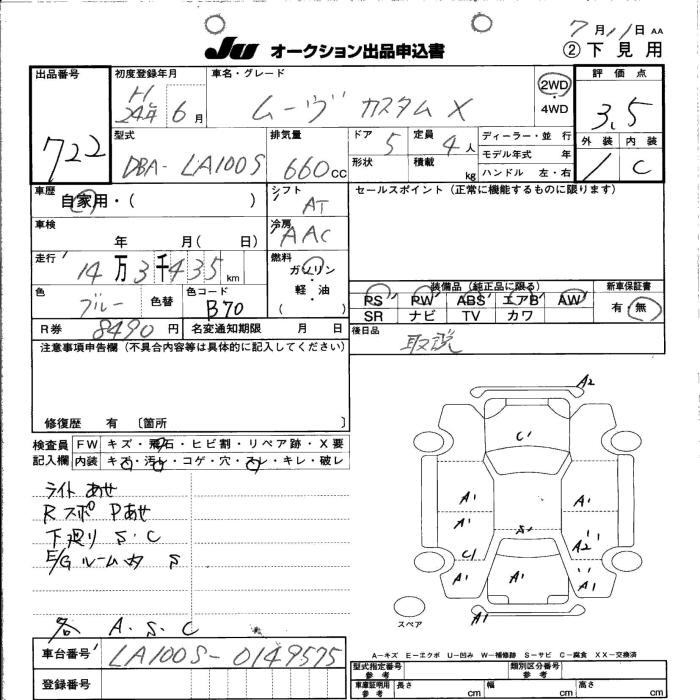 7月11日 AA
JU オークション出品申込書 ②下見用
出品番号 722
初度登録年月 H24年6月
車名・グレード ムーヴ カスタム X
2WD・4WD
評価点 3.5
外装 1 内装 C
型式 DBA- LA100S
排気量 660cc
ドア 5 定員 4人
形状 積載 kg
ディーラー・並行
モデル年式 年
ハンドル 左・右
車歴 自家用・( )
シフト AT
セールスポイント(正常に機能するものに限ります)
車検 年 月( 日)
冷房 AAC
走行 14万3千435km
燃料 ガソリン・軽・油 ( )
色 ブルー 色替 色コード B70
装備品(純正品に限る) 新車保証書
PS PW ABS エアB AW 有・無
SR ナビ TV カワ
R券 8490円 名変通知期限 月 日
後日品 取説
注意事項申告欄(不具合内容等は具体的に記入してください)
修復歴 有 〔箇所 〕
検査員記入欄 FW キズ・飛石・ヒビ割・リペア跡・X要
内装 キズ・汚レ・コゲ・穴・スレ・キレ・破レ
ライト あせ
R スポ Pあせ
下廻り S・C
E/Gルーム内 S
各 A・S・C
A2
C1
A1 A1
A1 A2
S1
C1
A1 A1 A1
A1
スペア
A-キズ E-エクボ U-凹み W-補修跡 S-サビ C-腐食 XX-交換済
車台番号 LA100S-0149575
登録番号
型式指定番号 参考 類別区分番号 参考
車庫証明用 参考 長さ cm 幅 cm 高さ cm